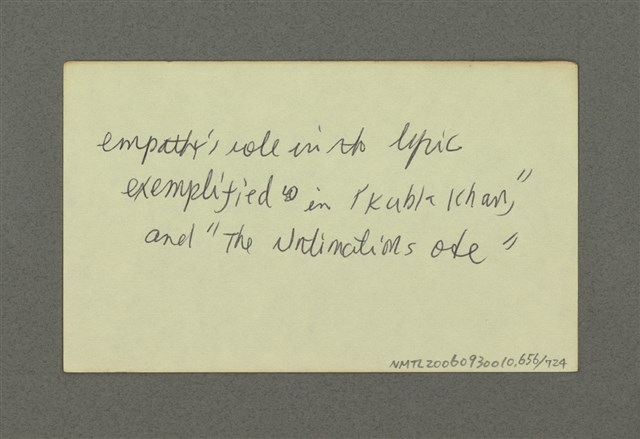 empathy's role in the lyric
exemplified in "Kubla Khan,"
and "The Intimations ode"
NMTL20060930010.656/724